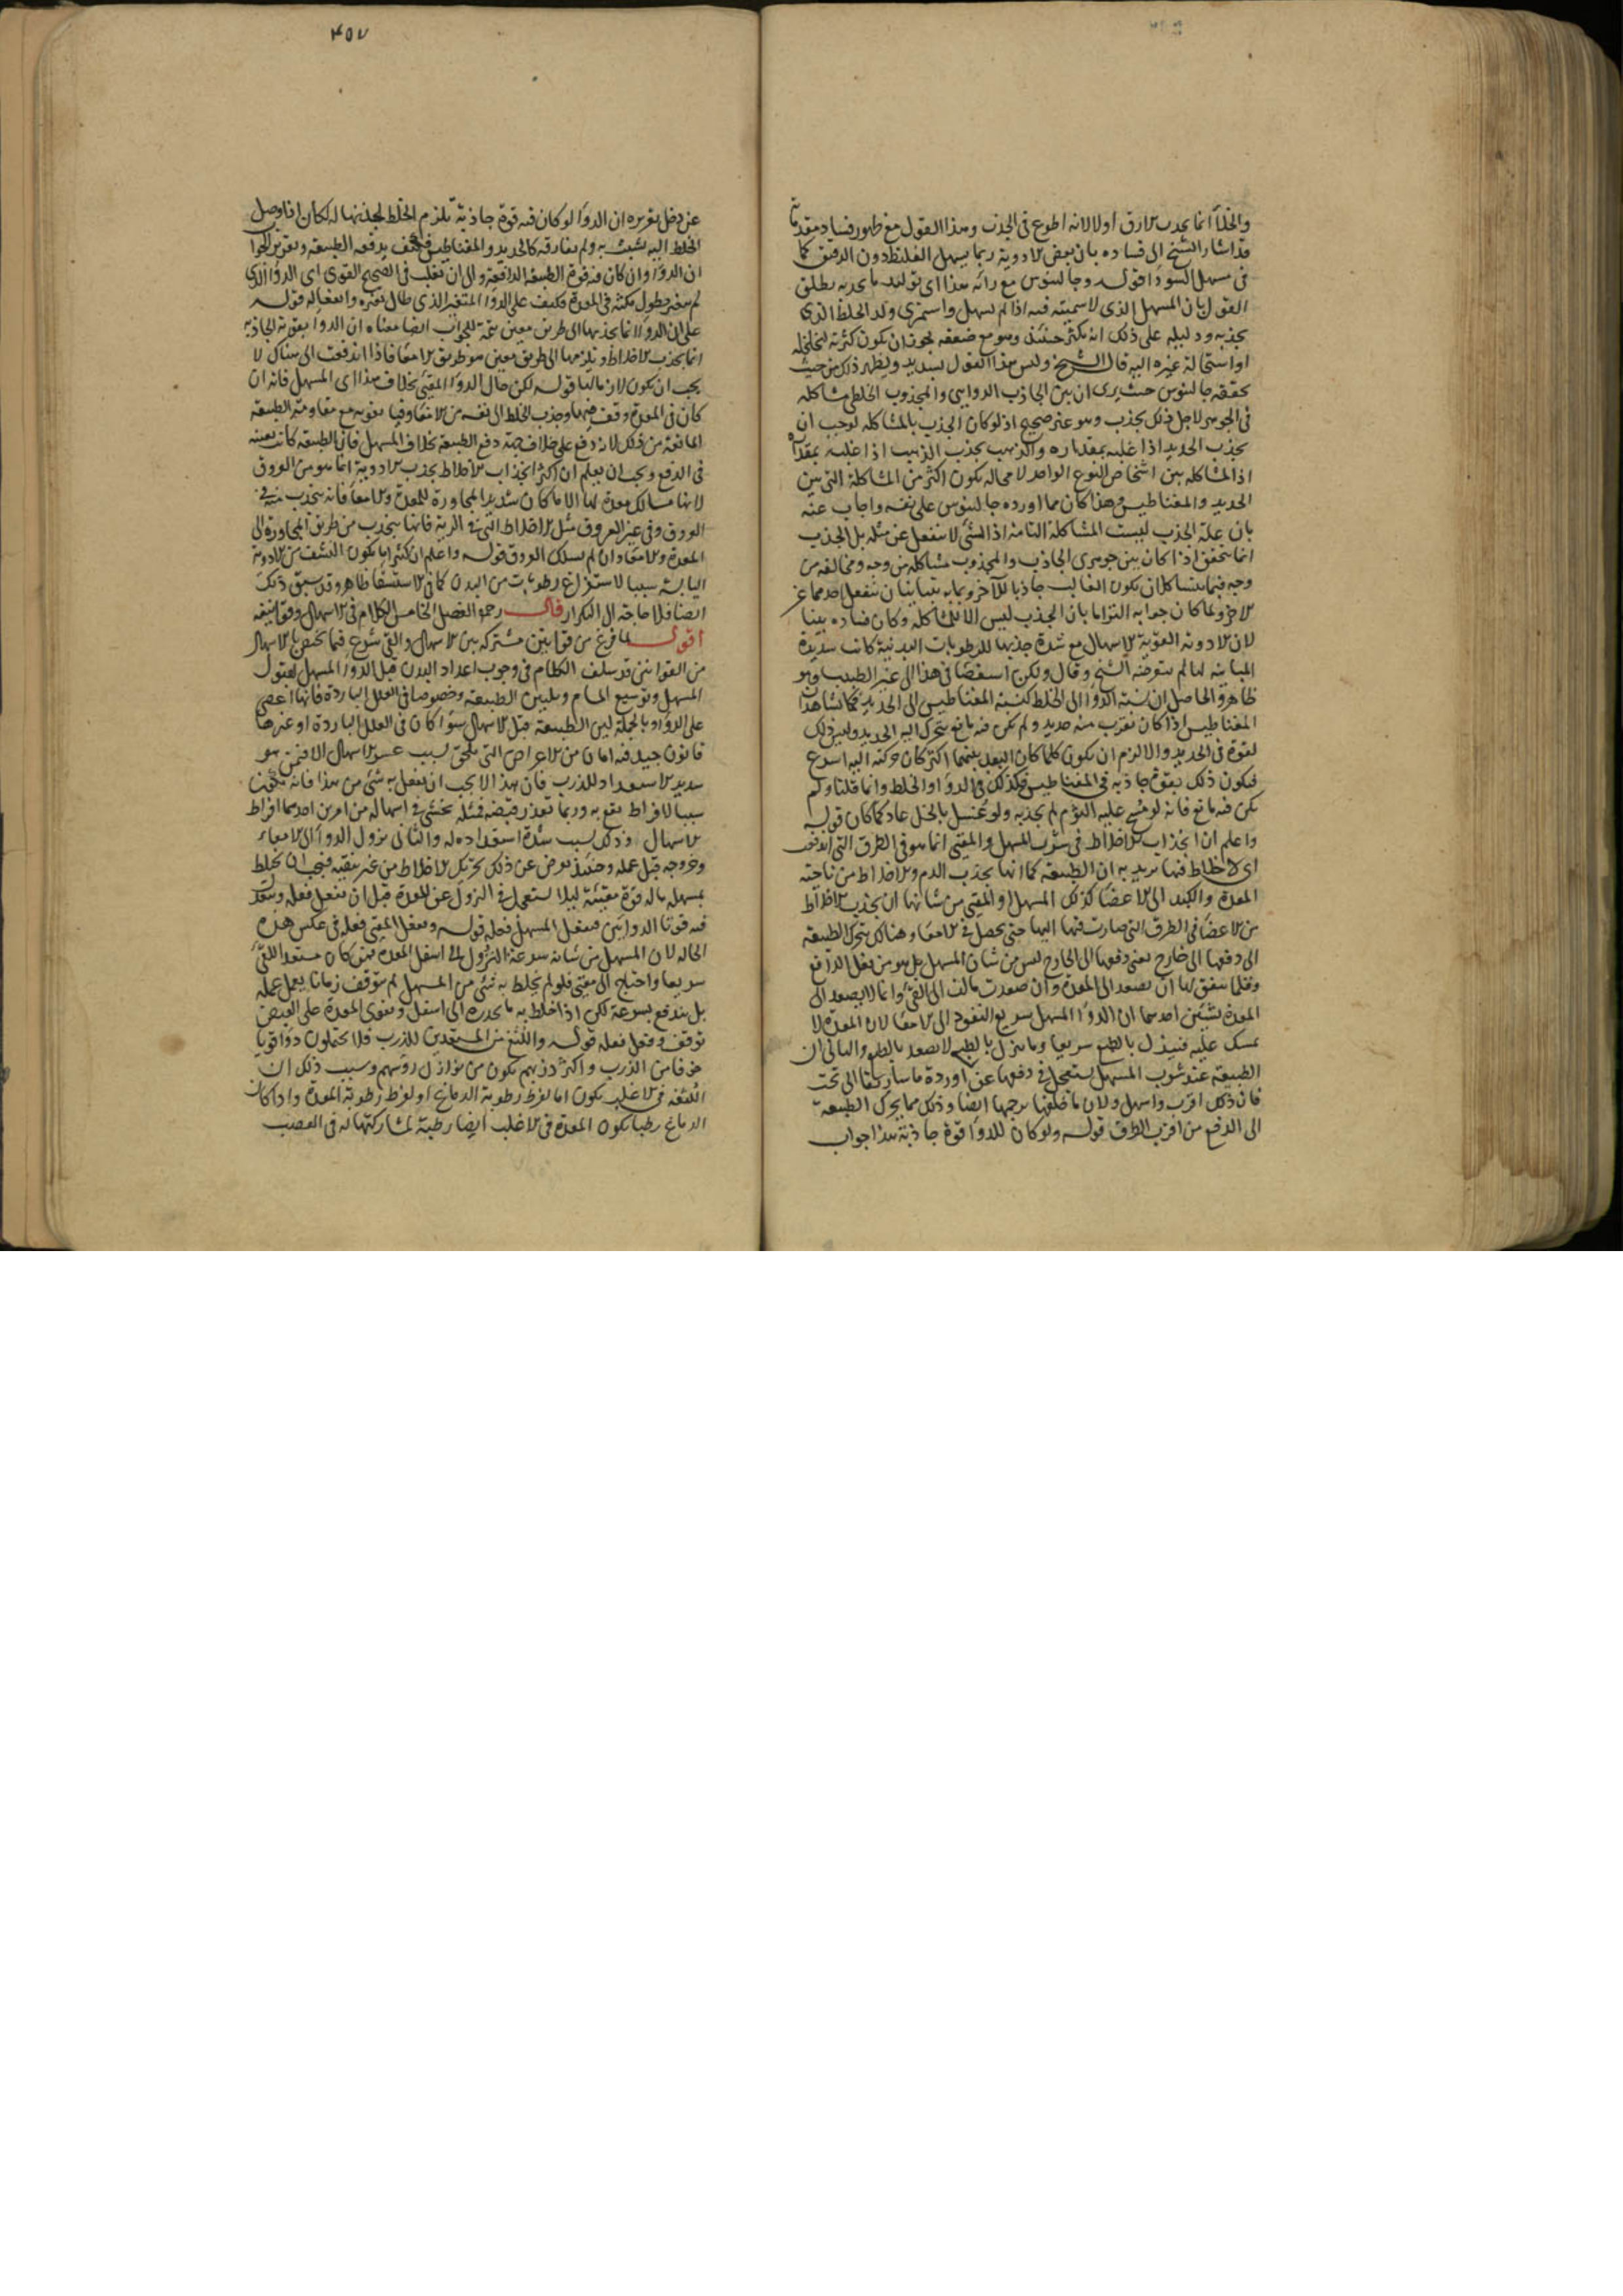 والخلأ انما يجذب الارق اولا لانه اطوع فى الجذب وهذا القول مع ظهور فساد مقدماته
قد اشار الشيخ الى فساده بان بعض الادوية ربما يسهل الغليظ دون الرقيق كما
فى مسهل السودا قوله وجالينوس مع رائه هذا اى تولد ما يجذبه يطلق
القول بان المسهل الذى لا سمية فيه اذا لم يسهل واستمرى ولد الخلط الذى
يجذبه ودليله على ذلك انه يكثر حينئذ وهو مع ضعفه يجوز ان يكون كثرته لتخلخله
او استحالة غيره اليه قال الشيخ وليس هذا القول بسديد ويظهر ذلك من حيث
يحققه جالينوس حيث يرى ان بين الجاذب الدوايى والمجذوب الخلطى مشاكلة
فى الجوهر لاجل ذلك يجذب وهو غير صحيح اذ لو كان الجذب بالمشاكلة لوجب ان
يجذب الحديد اذا غلبه بمقداره والذهب يجذب الذهب اذا غلبه بمقداره
اذ المشاكلة بين اشخاص النوع الواحد لا محالة يكون اكثر من المشاكلة التى بين
الحديد والمغناطيس وهذا كان مما اورده جالينوس على نفسه واجاب عنه
بان علة الجذب ليست المشاكلة التامة اذ الشئ لا ينفعل عن مثله بل الجذب
انما يتحقق اذا كان بين جوهرى الجاذب والمجذوب مشاكلة من وجه ومخالفة من
وجه فبما يتشاكلان يكون الغالب جاذبا للاخر وبما يتباينان ينفعل احدهما عن
الاخر ولما كان جوابه التزاما بان الجذب ليس الا للمشاكلة وكان فساده بينا
لان الادوية القوية الاسهال مع شدة جذبها للرطوبات البدنية كانت شديدة
المباينة لها لم يتعرضه الشيخ وقال ولكن استقصا فى هذا الى غير الطبيب وهو
ظاهر والحاصل ان نسبة الدوا الى الخلط كنسبة المغناطيس الى الحديد فكما نشاهد ان
المغناطيس اذا كان بقرب منه حديد ولم يكن فيه مانع يتحرك اليه الحديد وليس ذلك
لقوة فى الحديد والا لزم ان يكون كلما كان البعد بينهما اكثر كان حركته اليه اسرع
فيكون ذلك بقوة جاذبة فى المغناطيس فكذلك فى الدوا والخلط وانما قلنا ولم
يكن فيه مانع فانه لو مسح عليه الثوم لم يجذبه ولو غسل بالخل عاد كما كان قوله
واعلم ان انجذاب الاخلاط فى شرب المسهل والمقيى انما هو فى الطرق التى اندفعت
اى الاخلاط فيها يريد به ان الطبيعة كما انها يجذب الدم والاخلاط من ناحية
المعدة والكبد الى الاعضا كذلك المسهل او المقيى من شانها ان يجذب الاخلاط
من الاعضا فى الطرق التى صارت فيها اليها حتى يحصل فى الامعا وهناك يتحرك الطبيعة
الى دفعها الى خارج يعنى دفعها الى الخارج ليس من شان المسهل بل هو من فعل الدافع
وقلما يتفق لها ان يصعد الى المعدة وان صعدت مالت الى القئ وانما لا يصعد الى
المعدة لشيئين احدهما ان الدوا المسهل سريع النفوذ الى الامعا لان المعدة لا
تمسك عليه فينزل بالطبع سريعا وما ينزل بالطبع لا يصعد بالطبع والثانى ان
الطبيعة عند شرب المسهل يستعجل فى دفعها عن اوردة ماساريقا الى تحت
فان ذلك اقرب واسهل ولان ما خلفها يزحمها ايضا وذلك مما يحرك الطبيعة
الى الدفع من اقرب الطرق قوله ولو كان للدوا قوة جاذبة هذا جواب
٤٥٧
عن دخل تقريره ان الدوا لو كان فيه قوة جاذبة تلزم الخلط لجذبها له لكان اذا وصل
الخلط اليه تشبث به ولم يفارقه كالحديد والمغناطيس فكيف يدفعه الطبيعة وتقرير الجواب
ان الدوا وان كان فيه قوة الطبيعة الدافعة والى ان تغلب فى الصحيح القوى اى الدوا الذى
لم يتغير بطول مكثه فى المعدة فكيف على الدوا المتغير الذى طال تغيره وانفعاله قوله
على ان الدوا انما يجذبها الى طريق معين تتمة للجواب ايضا معناه ان الدوا بقوته الجاذبة
انما يجذب الاخلاط ويلزمها الى طريق معين هو طريق الامعا فاذا اندفعت الى هناك لا
يجب ان يكون لازما لها قوله لكن حال الدوا المقيئ بخلاف هذا اى المسهل فانه ان
كان فى المعدة وقف فيها وجذب الخلط الى نفسه من الامعا وقيا بقوته مع مقاومة الطبيعة
المانعة من ذلك لانه دفع على خلاف جهة دفع الطبيعة بخلاف المسهل فان الطبيعة كانت معينة
فى الدفع ويجب ان يعلم ان اكثر انجذاب الاخلاط بجذب الادوية انما هو من العروق
لانها مسالك معدة لها الا ما كان شديد المجاورة للمعدة والامعا فانه ينجذب منه فى
العروق وفى غير العروق مثل الاخلاط التى فى الرية فانها ينجذب من طريق المجاورة الى
المعدة والامعا وان لم تسلك العروق قوله واعلم ان كثيرا ما يكون النشف من الادوية
اليابسة سببا لاستفراغ رطوبات من البدن كما فى الاستسقا ظاهر وقد سبق ذلك
ايضا فلا حاجة الى التكرار قال رحمه الفصل الخامس الكلام فى الاسهال وقوانينه
اقول لما فرغ من قوانين مشتركة بين الاسهال والقئ شرع فيما يختص بالاسهال
من القوانين قد سلف الكلام فى وجوب اعداد البدن قبل الدوا المسهل لقبول
المسهل وتوسيع المسام وتليين الطبيعة وخصوصا فى العلل الباردة فانها اعصى
على الدوا وبالجملة لين الطبيعة قبل الاسهال سوا كان فى العلل الباردة او غيرها
قانون جيد فيه امان من الاعراض التى تلحق بسبب عسر الاسهال الا فيمن هو
شديد الاستعداد للذرب فان هذا لا يجب ان يفعل به شئ من هذا فانه يكون
سببا لافراط يقع به وربما تعذر قبضه فمثله يخشى فى اسهاله من امرين احدهما افراط
الاسهال وذلك بسبب شدة استعداده له والثانى نزول الدوا الى الامعاء
وخروجه قبل عمله وحينئذ يعرض عن ذلك تحريك الاخلاط من غير ينقيه فيجب ان يخلط
بمسهله ما له قوة مقيئة ليلا يستعجل فى النزول عن المعدة قبل ان يفعل فعله ويتقد
فيه قوتا الدوايين فيفعل المسهل فعله قوله ويفعل المقيى فعله فى عكس هذه
الحالة لان المسهل من شانه سرعة النزول الى اسفل المعدة فمن كان مستعدا للقئ
سريعا واحتاج الى مقيئ فلو لم يخلط به شئ من المسهل لم يتوقف زمانا يعمل عمله
بل يندفع بسرعة لكن اذا خلط به ما يحدره الى اسفل ويقوى المعدة على القبض
توقف وفعل فعله قوله واللثغ من المستعدين للذرب فلا يحتملون دوا قويا
خوفا من الذرب واكثر ذربهم يكون من نوازل روسهم وسبب ذلك ان
اللثغة فى الاغلب يكون اما لفرط رطوبة الدماغ او لفرط رطوبة المعدة واذا كان
الدماغ رطبا يكون المعدة فى الاغلب ايضا رطبة لمشاركتها له فى العصب